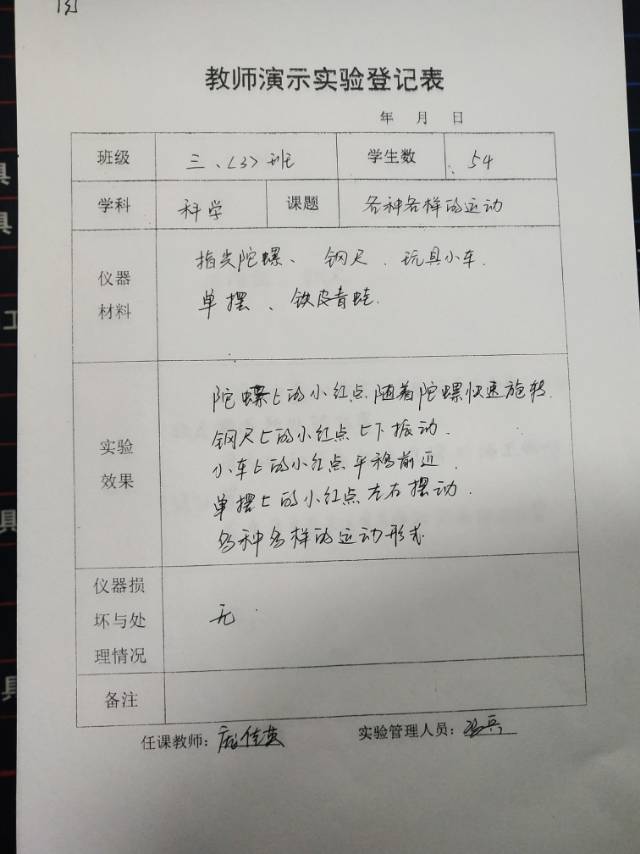 教师演示实验登记表
年 月 日
班级 三、(3)班 学生数 54
学科 科学 课题 各种各样的运动
仪器材料 指尖陀螺、钢尺、玩具小车、
单摆、铁皮青蛙.
实验效果 陀螺上的小红点随着陀螺快速旋转.
钢尺上的小红点上下振动.
小车上的小红点平移前近.
单摆上的小红点左右摆动.
各种各样的运动形式.
仪器损坏与处理情况 无.
备注
任课教师: 实验管理人员: